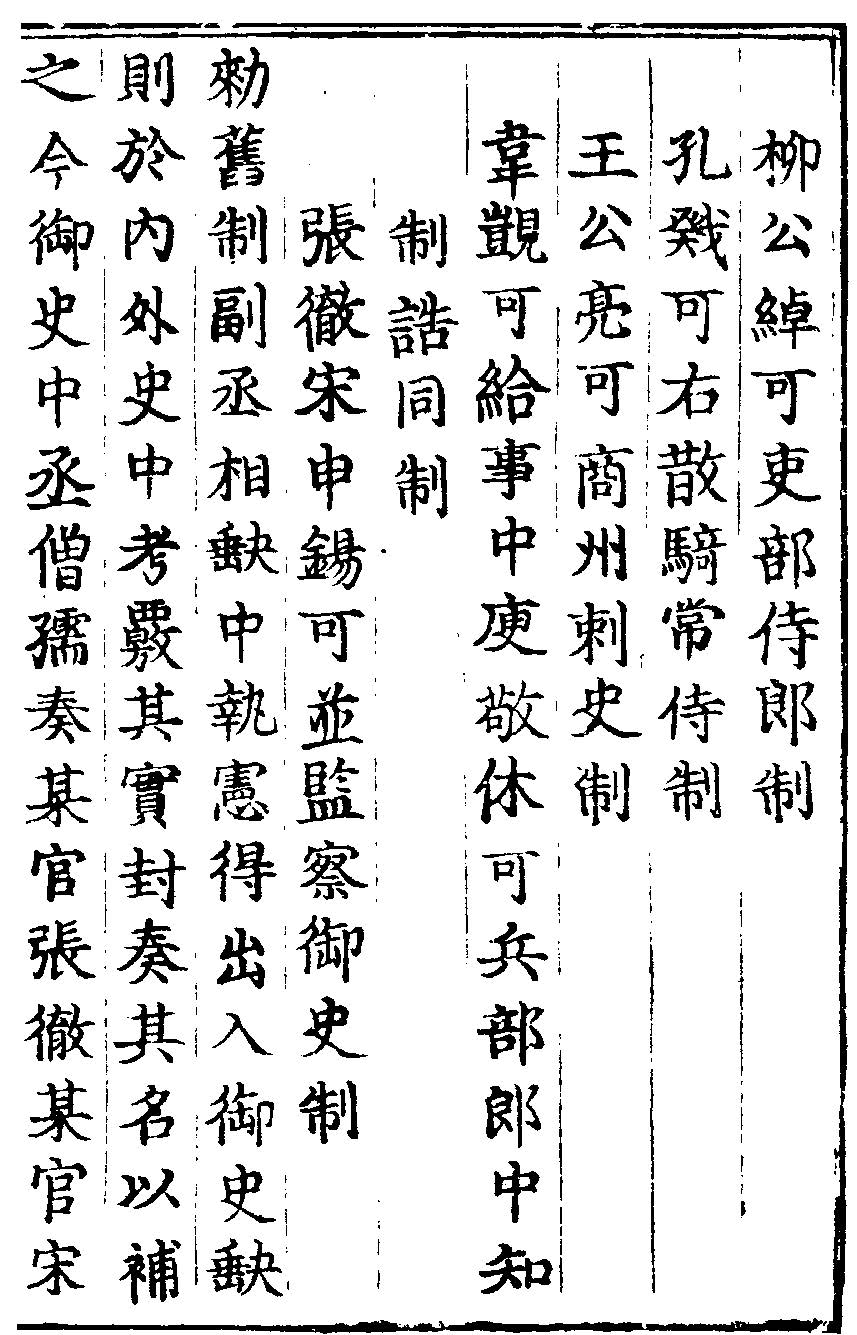 柳公綽可吏部侍郎制
孔戣可右散騎常侍制
王公亮可商州刺史制
韋覬可給事中庾敬休可兵部郎中知
制誥同制
張徹宋申錫可並監察御史制
勑舊制副丞相缺中執憲得出入御史缺
則於內外史中考覈其實封奏其名以補
之今御史中丞僧孺奏某官張徹某官宋